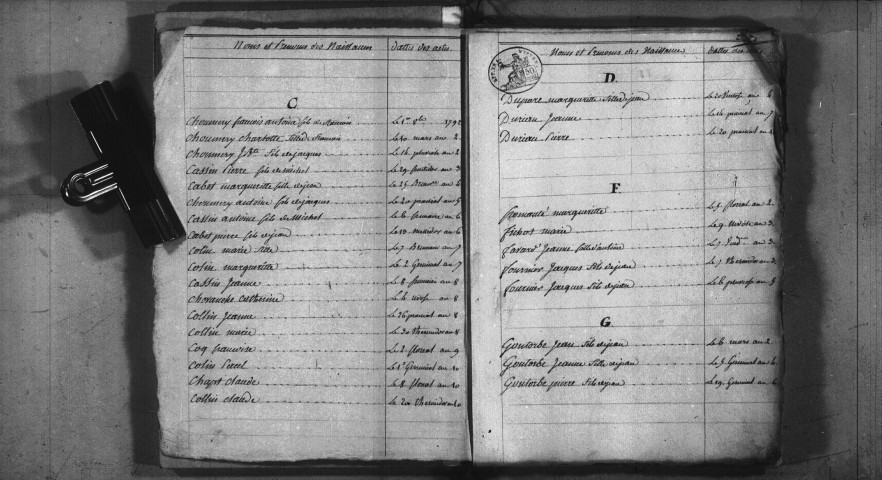 Noms et Prenoms des Naissances Dattes des actes.
C
Choumery francois antoine fils de Romain Le 1er 8bre 1792
Choumery charlotte fille de Romain Le 20 mars an 2
Choumery J.Bte fils de jacques Le 16 pluviose an 2
Cassin Pierre fils de michel Le 29 an 3
Cabot marguerite fille de jean Le 25 Brum an 4
Choumery antoine fils de jacques Le 20 prairial an 5
Cassin antoine fils de Michel Le 6 frimaire an 6
Cabot pierre fils de jean Le 10 messidor an 6
Colin marie Le 7 Brumaire an 7
Colin marguerite Le 2 Germinal an 7
Cassin Jeanne Le 8 an 8
catherine Le 6 nivose an 8
Collin Jeanne Le 26 prairial an 8
Collin marie Le 30 thermidor an 8
Coq francoise Le 2 floreal an 9
Colin Le 1er Germinal an 10
Chapot claude Le 8 floreal an 10
Collin claude Le 20 thermidor an 10
Noms et Prenoms des Naissances Dattes des
D.
marguerite fille de jean Le 20 an 6
Durian Jeanne Le 14 prairial an 7
Durian Pierre Le 20 prairial an
F
marguerite Le 5 floreal an 2
marie Le 9 an 3
Jeanne fille d'antoine Le 7 an 3
fournier Jacques fils de jean Le 7 thermidor an
fournier Jacques fils de jean Le 6 an
G
Gontorbe Jean fils de jean Le 6 mars an 2
Gontorbe Jeanne fille de jean Le 5 Germinal an
Gontorbe pierre fils de jean Le 19 Germinal an 6